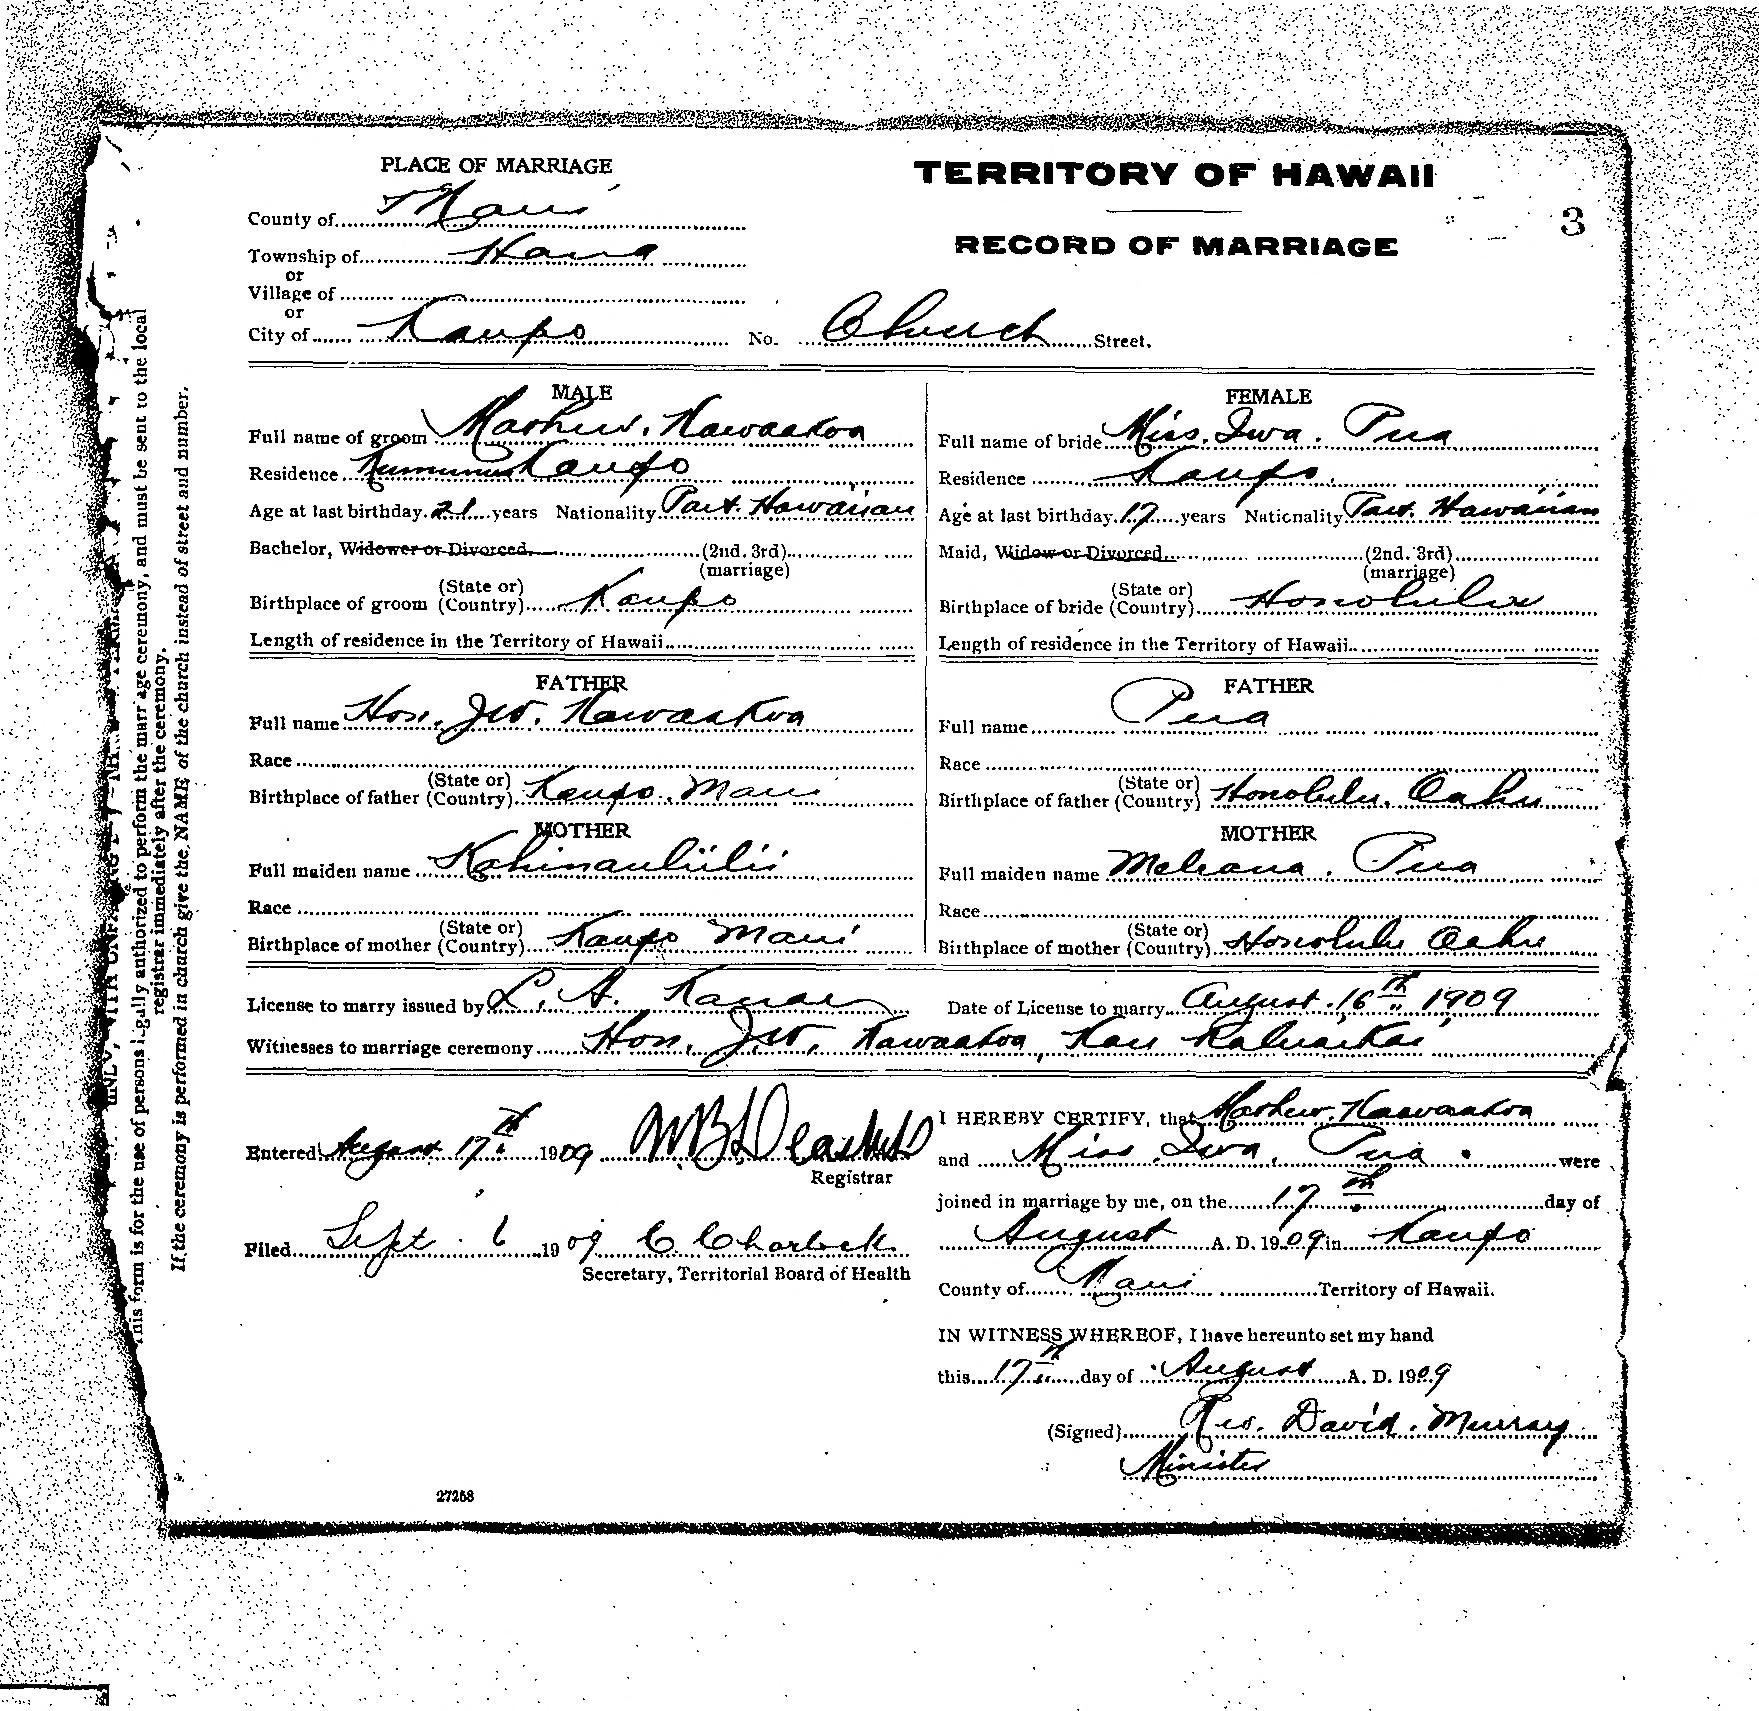 PLACE OF MARRIAGE
County of Maui
Township of Hana
or
Village of
or
City of Kaupo No. Church Street.
TERRITORY OF HAWAII
RECORD OF MARRIAGE
3
MALE
Full name of groom Mathew. Kawaakoa
Residence Kaupo
Age at last birthday 21 years Nationality Part. Hawaiian
Bachelor, Widower or Divorced (2nd. 3rd)
(marriage)
Birthplace of groom (State or) (Country) Kaupo
Length of residence in the Territory of Hawaii
FATHER
Full name Hon. J.W. Kawaakoa
Race
Birthplace of father (State or) (Country) Kaupo. Maui
MOTHER
Full maiden name Kahinauliilii
Race
Birthplace of mother (State or) (Country) Kaupo Maui
FEMALE
Full name of bride Miss. Iwa. Pua
Residence Kaupo.
Age at last birthday 17 years Nationality Part. Hawaiian
Maid, Widow or Divorced (2nd. 3rd)
(marriage)
Birthplace of bride (State or) (Country) Honolulu
Length of residence in the Territory of Hawaii
FATHER
Full name Pua
Race
Birthplace of father (State or) (Country) Honolulu. Oahu
MOTHER
Full maiden name Meleana. Pua
Race
Birthplace of mother (State or) (Country) Honolulu Oahu
License to marry issued by L. A. Date of License to marry August. 16th 1909
Witnesses to marriage ceremony Hon. J.W. Kawaakoa, Kau Kaluaikai
Entered August 17th 1909
Registrar
Filed Sept. 6 1909 C Charlock
Secretary, Territorial Board of Health
27268
I HEREBY CERTIFY, that Mathew. Kaawaakoa
and Miss Iwa. Pua. were
joined in marriage by me, on the 17th day of
August A. D. 1909 in Kaupo
County of Maui Territory of Hawaii.
IN WITNESS WHEREOF, I have hereunto set my hand
this 17th day of August A. D. 1909
(Signed) Rev. David. Murray
Minister
This form is for the use of persons legally authorized to perform the marriage ceremony, and must be sent to the local
registrar immediately after the ceremony.
If the ceremony is performed in church give the NAME of the church instead of street and number.